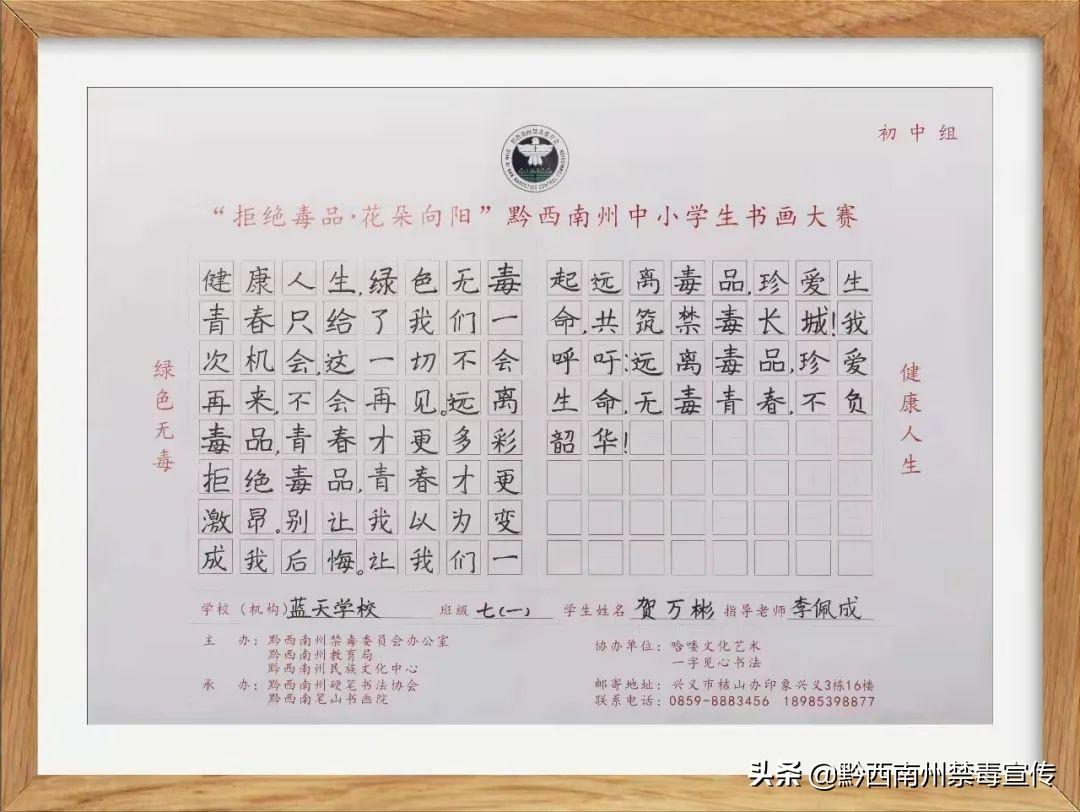 初中组
“拒绝毒品·花朵向阳”黔西南州中小学生书画大赛
绿色无毒
健康人生,绿色无毒
青春只给了我们一
次机会,这一切不会
再来,不会再见。远离
毒品,青春才更多彩
拒绝毒品,青春才更
激昂。别让我以为变
成我后悔。让我们一
起远离毒品,珍爱生
命,共筑禁毒长城!我
呼吁:远离毒品,珍爱
生命,无毒青春,不负
韶华!
健康人生
学校（机构）蓝天学校 班级 七(一) 学生姓名 贺万彬 指导老师 李佩成
主 办：黔西南州禁毒委员会办公室
黔西南州教育局
黔西南州民族文化中心
承 办：黔西南州硬笔书法协会
黔西南笔山书画院
协办单位：哈喽文化艺术
一字见心书法
邮寄地址：兴义市桔山办印象兴义3栋16楼
联系电话：0859-8883456 18985398877
头条 @黔西南州禁毒宣传